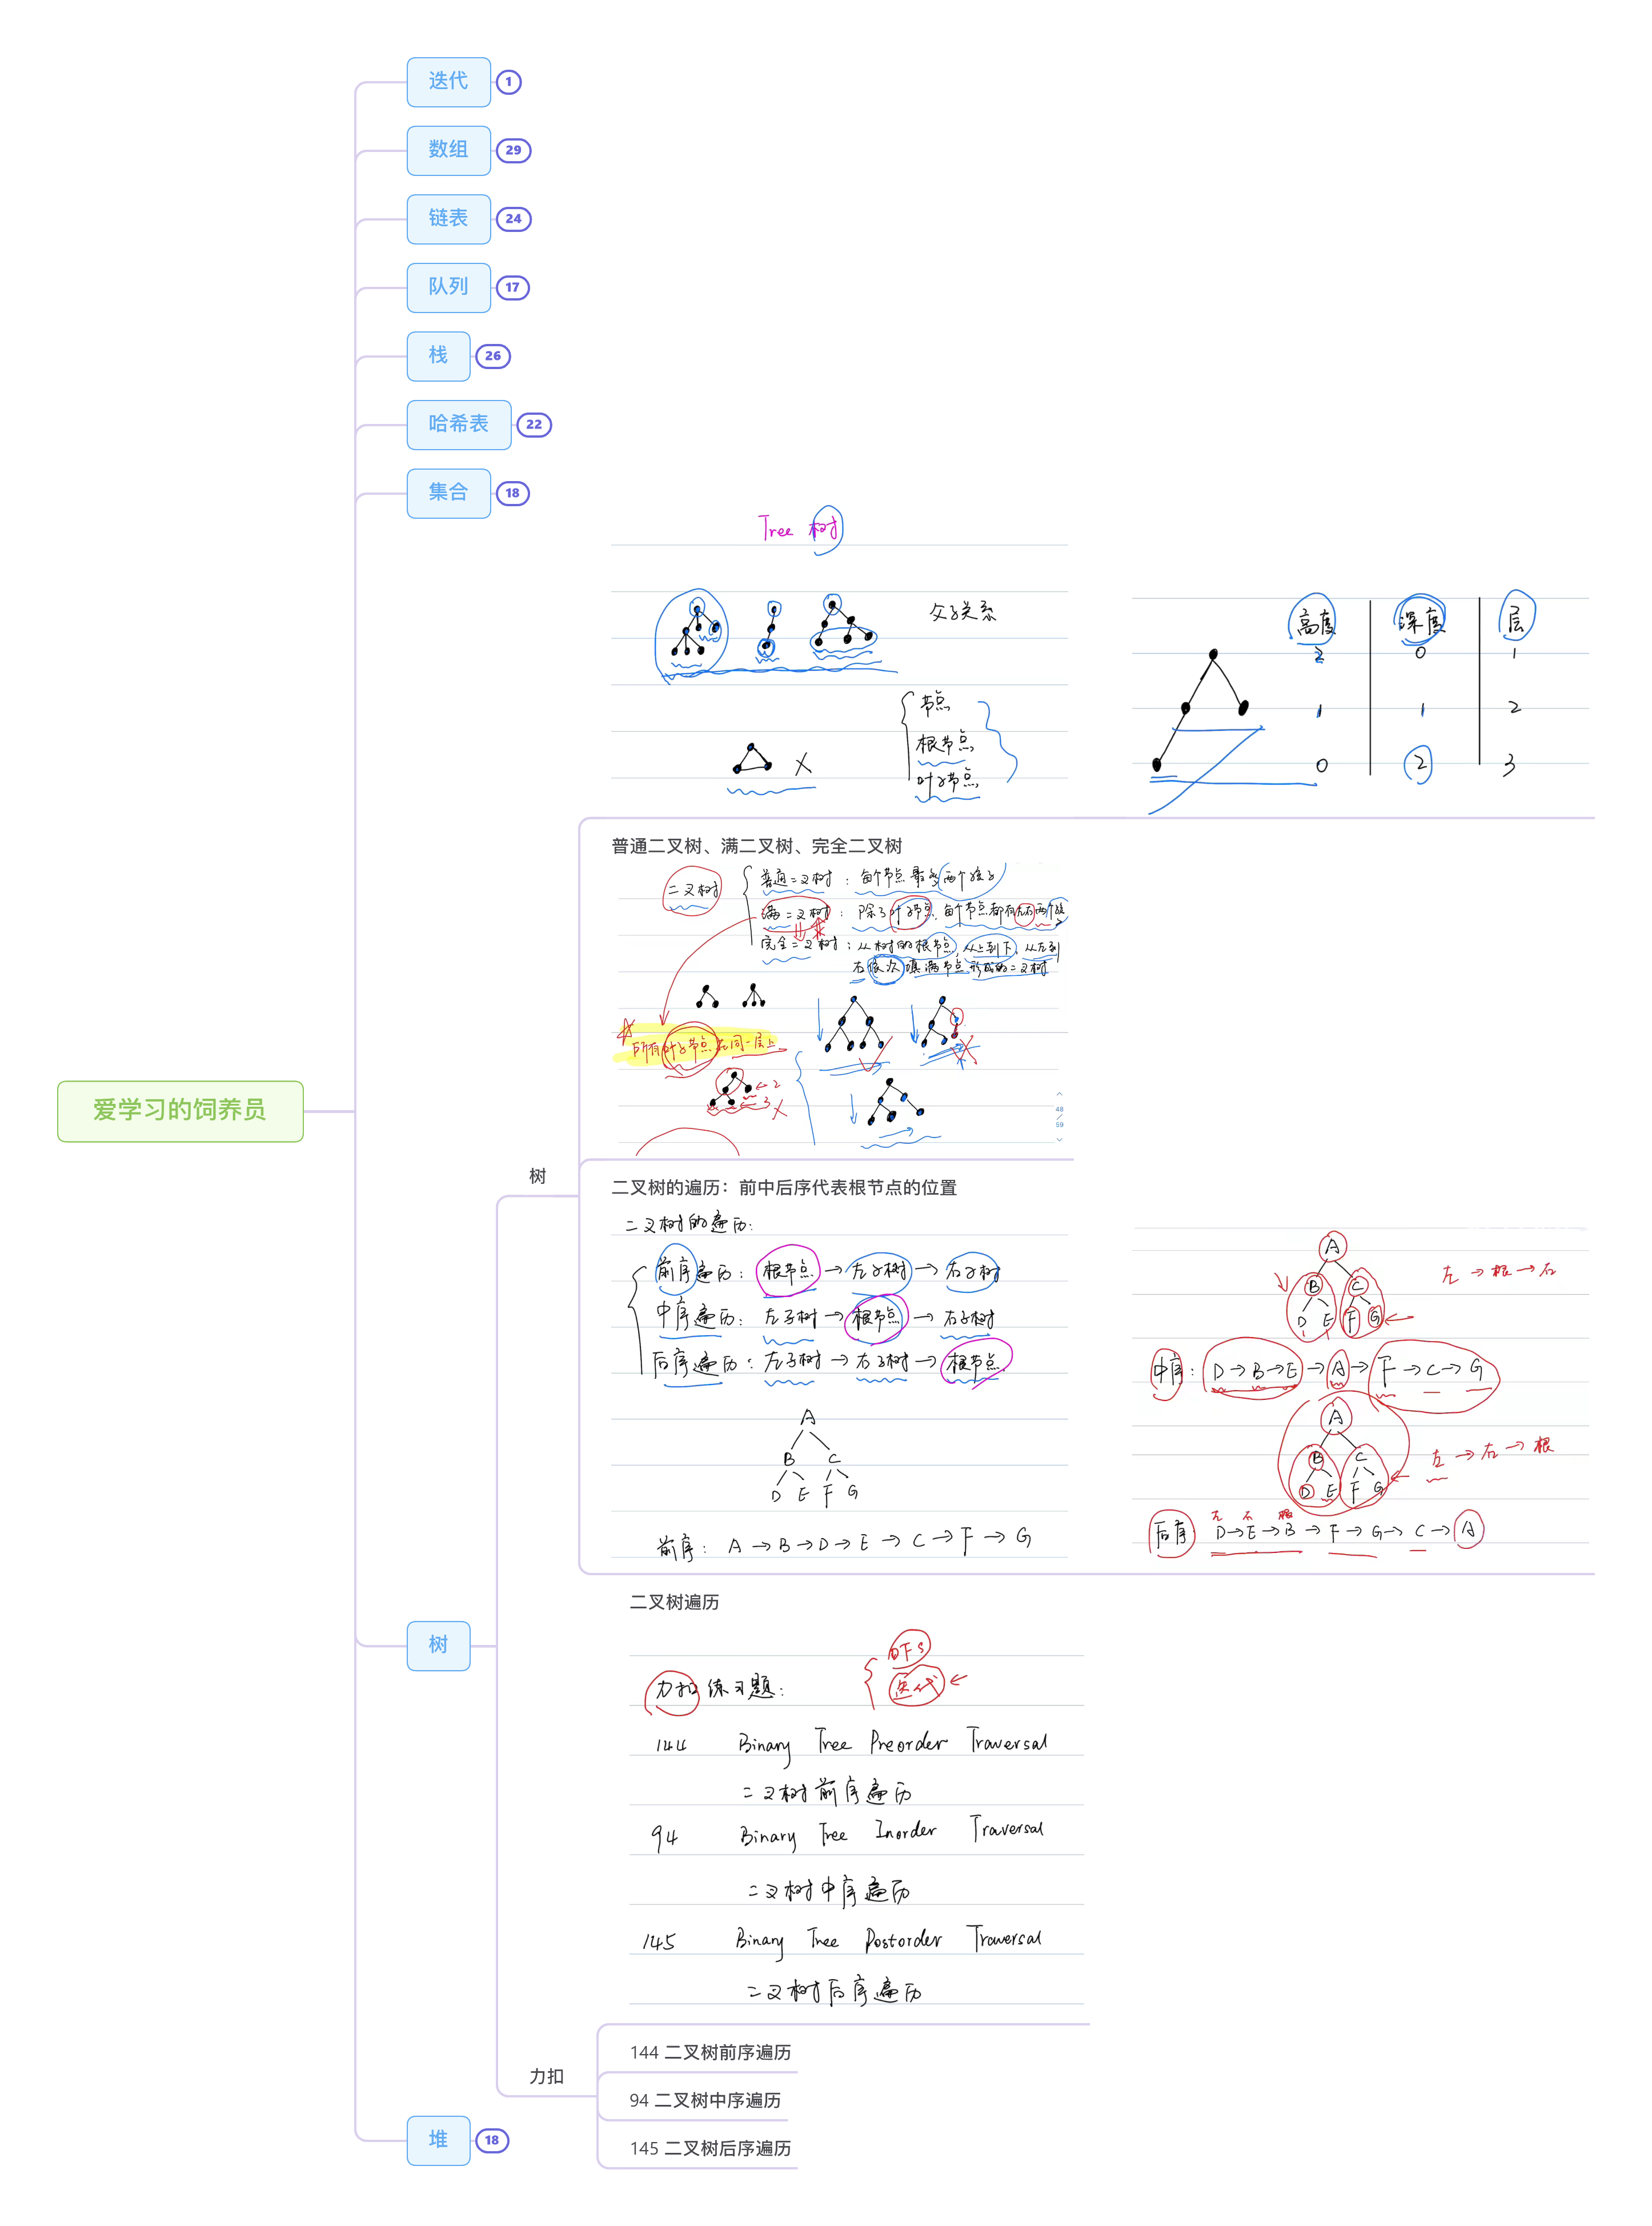 爱学习的饲养员
迭代 1
数组 29
链表 24
队列 17
栈 26
哈希表 22
集合 18
树
树
Tree 树
父子关系
节点
根节点
叶子节点
X
高度 深度 层
2 0 1
1 1 2
0 2 3
普通二叉树、满二叉树、完全二叉树
二叉树
普通二叉树：每个节点最多两个孩子
满二叉树：除了叶子节点，每个节点都有左右两个孩
完全二叉树：从树的根节点，从上到下，从左到
右依次填满节点形成的二叉树
所有叶子节点在同一层上
2
3 X
48
/
59
二叉树的遍历：前中后序代表根节点的位置
二叉树的遍历：
前序遍历：根节点→左子树→右子树
中序遍历：左子树→根节点→右子树
后序遍历：左子树→右子树→根节点
A
B C
D E F G
前序：A→B→D→E→C→F→G
A
B C
D E F G
左→根→右
中序：D→B→E→A→F→C→G
A
B C
D E F G
左→右→根
左 右 根
后序 D→E→B→F→G→C→A
力扣
二叉树遍历
DFS
力扣练习题： 迭代←
144 Binary Tree Preorder Traversal
二叉树前序遍历
94 Binary Tree Inorder Traversal
二叉树中序遍历
145 Binary Tree Postorder Traversal
二叉树后序遍历
144 二叉树前序遍历
94 二叉树中序遍历
145 二叉树后序遍历
堆 18